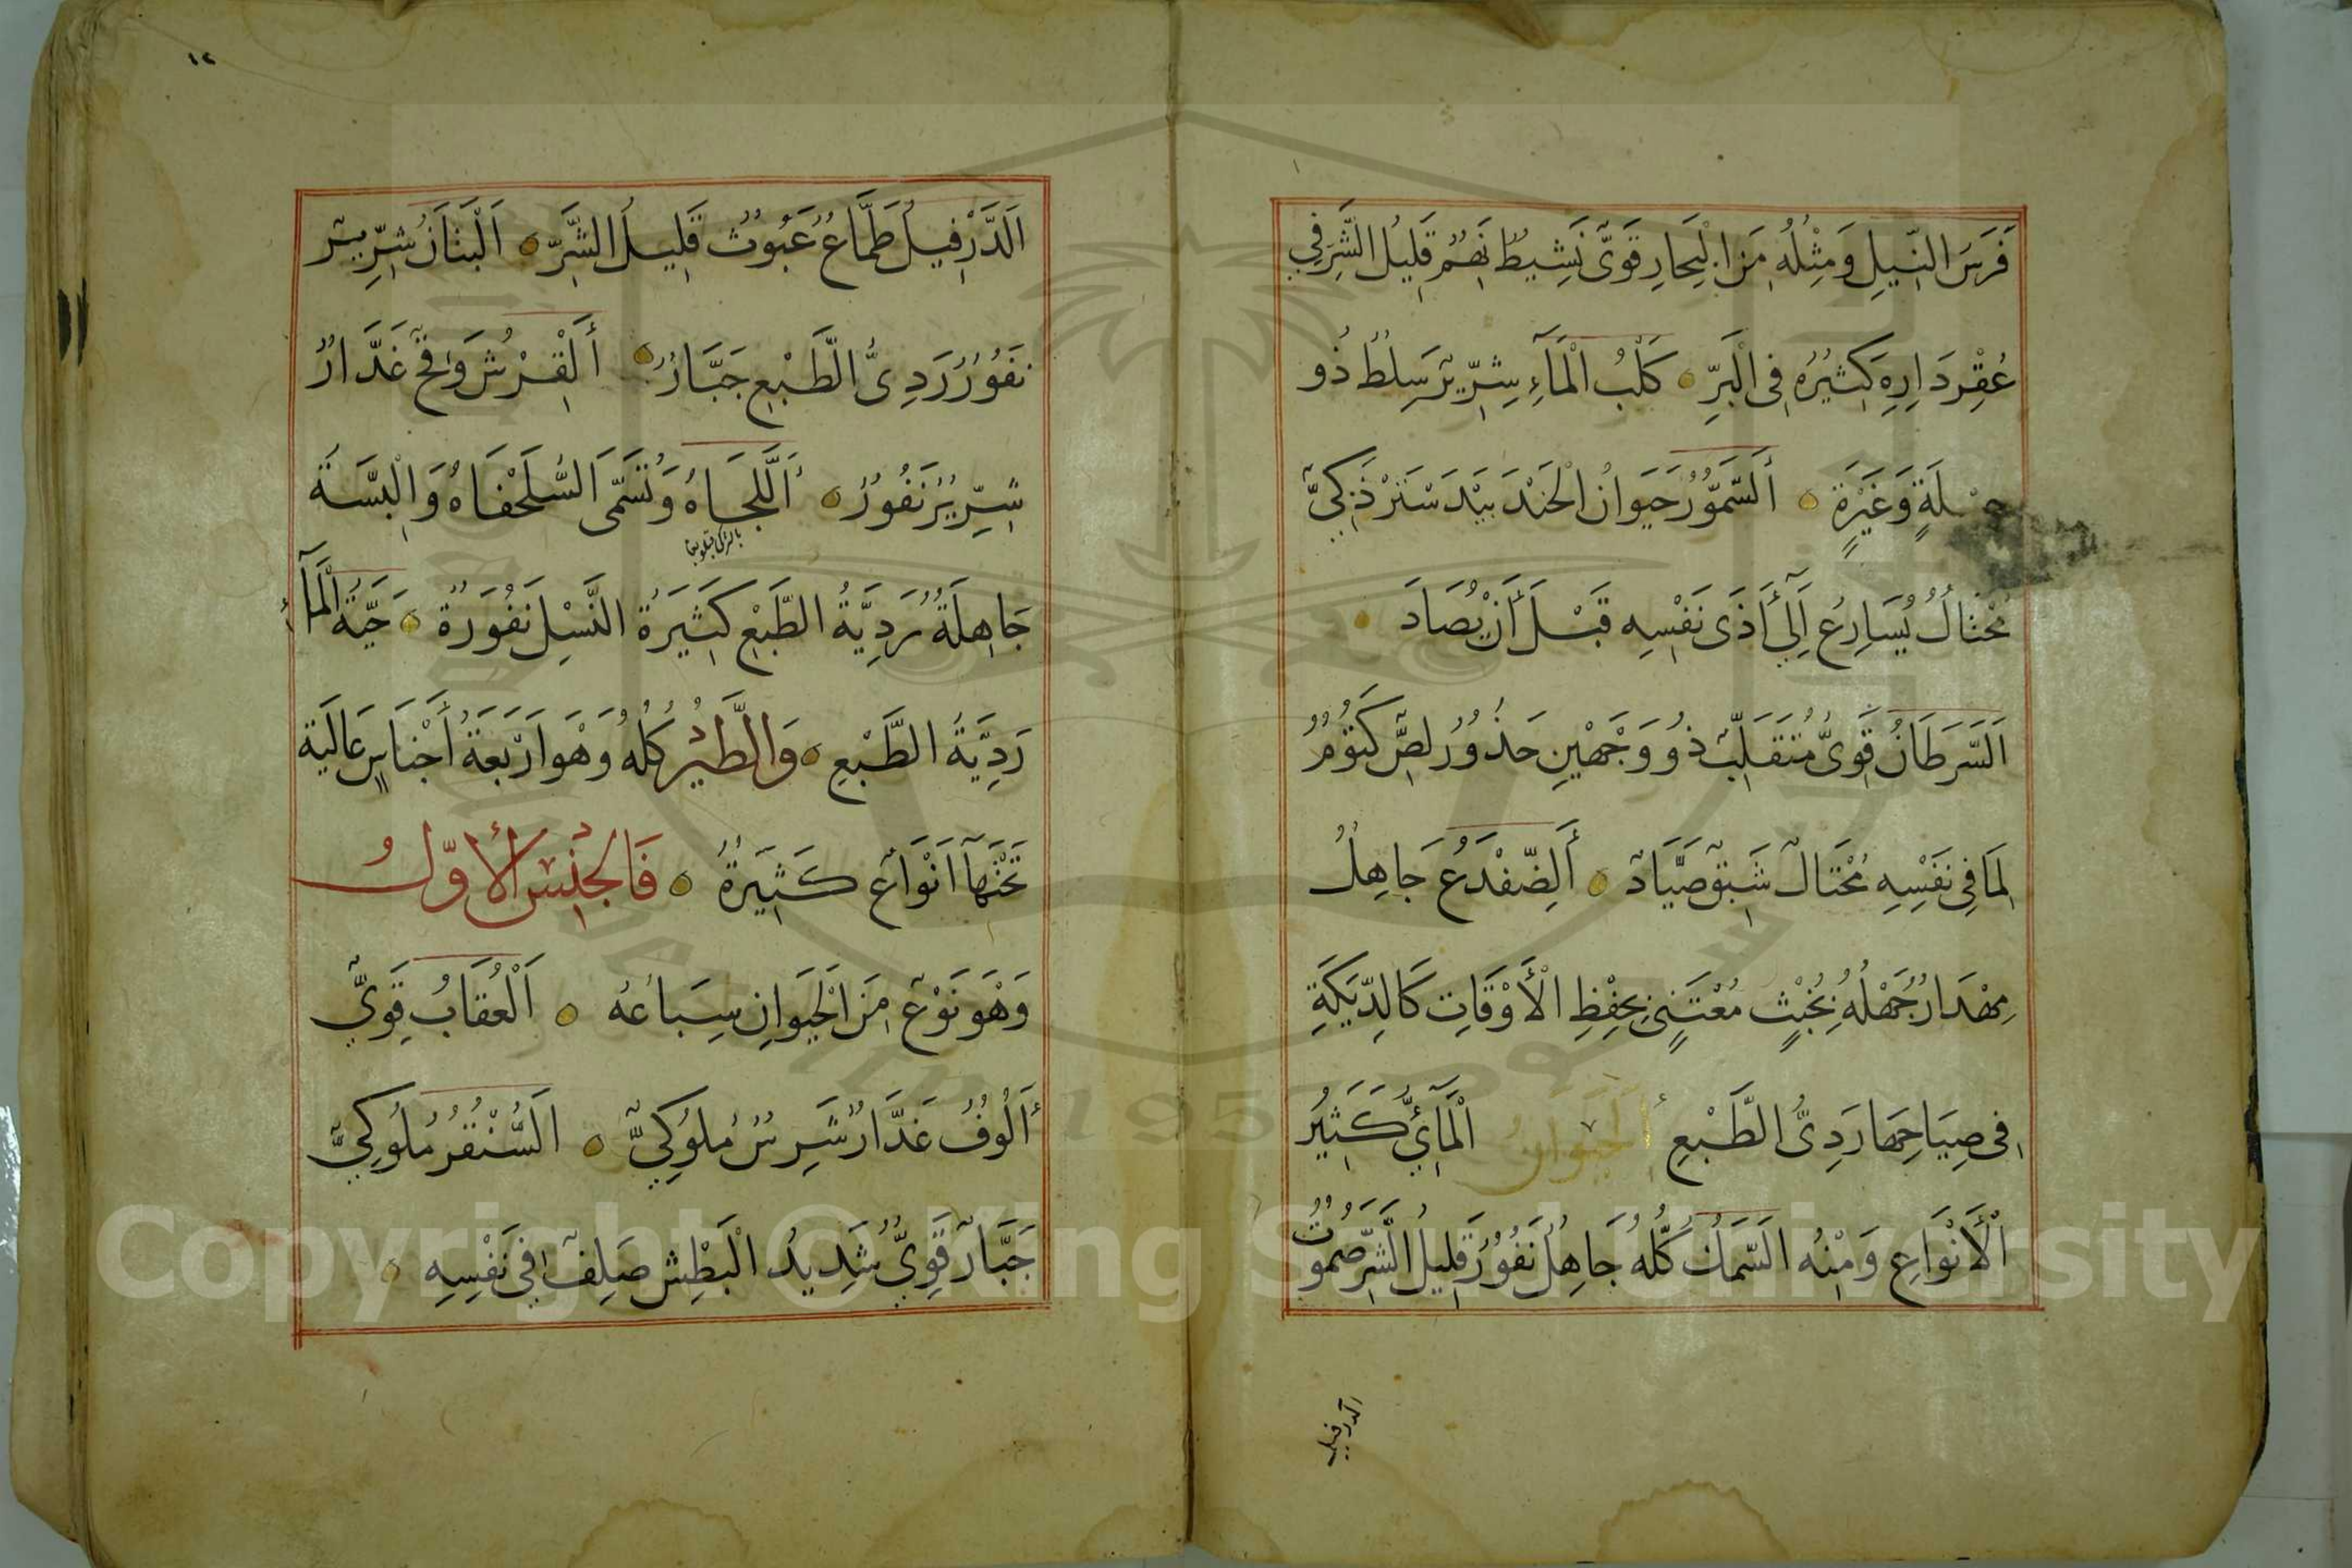 فَرَسَ النِّيلِ وَمِثْلُهُ مَنَ الْبِحَارِ قَوِيٌّ نَشِيطٌ نَهِمٌ قَلِيلُ الشَّرِ فِي
عُقْرِ دَارِهِ كَثِيرُهُ فِي الْبَرِّ كَلْبُ الْمَآءِ شِرِّيرٌ سَلِطٌ ذُو
حِيْلَةٍ وَغَيْرَةٍ اَلسَّمُّوُرُ حَيَوَانُ الْجَنْدَ بَيْدَ سْتَرْ ذَكِيٌّ
مُحْتَالٌ يُسَارِعُ اِلَى أَذَى نَفْسِهِ قَبْلَ أَنْ يُصَادَ
اَلسَّرَطَانُ قَوِيٌّ مُتَقَلِّبٌ ذُو وَجْهَيْنِ حَذُورٌ لِصٌّ كَتُوْمٌ
لِمَا فِي نَفْسِهِ مُحْتَالٌ شَبِقٌ صَيَّادٌ أَلضِّفْدَعُ جَاهِلٌ
مِهْدَارٌ جَهْلُهُ بِخُبْثٍ مُعْتَنٍ بِحِفْظِ الْأَوْقَاتِ كَالدِّيَكَةِ
فِي صِيَاحِهَا رَدِيُّ الطَّبْعِ اَلْحَيَوَانُ الْمَآئِيُّ كَثِيْرُ
الْأَنْوَاعِ وَمِنْهُ السَّمَكُ كُلُّهُ جَاهِلٌ نَفُوُرٌ قَلِيلُ الشَّرِّ صَمُوتٌ
الدرفيل
١٢
اَلدَّرْفِيلُ طَمَّاعٌ عَبُوثٌ قَلِيلُ الشَّرِّ اَلْبَنَانُ شِرِّيرٌ
نَفُوُرٌ رَدِيُّ الطَّبْعِ جَبَّارٌ أَلْقِرْشُ وَقِحٌ غَدَّارٌ
شِرِّيرٌ نَفُوُرٌ اَللَّجَاهُ وَتُسَمَّى السُّلَحْفَاهُ وَالْبَسَّةَ
جَاهِلَةٌ رَدِيَّةُ الطَّبْعِ كَثِيَرةُ النَّسْلِ نَفُوَرَةٌ حَيَّةُ الْمَآءِ
رَدِيَّةُ الطَّبْعِ وَالطَّيْرُ كُلُّهُ وَهْوَ اَرْبَعَةُ أَجْنَاسٍ عَالَيَة
تَحْتَهَا اَنْوَاعٌ كَثِيَرةٌ فَالْجِنْسُ الْأَوَّلُ
وَهْوَ نَوْعٌ مِنَ الْحَيَوَانِ سِبَاعُهُ اَلْعُقَابُ قَوِيٌّ
أَلُوفٌ غَدَّارٌ شَرِسٌ مُلوُكِيٌّ اَلسُّنْقُرُ مُلوُكِيٌّ
جَبَّارٌ قَوِيٌّ شَدِيدُ الْبَطْشِ صَلِفٌ فِي نَفْسِهِ
Copyright © King Saud University
1957